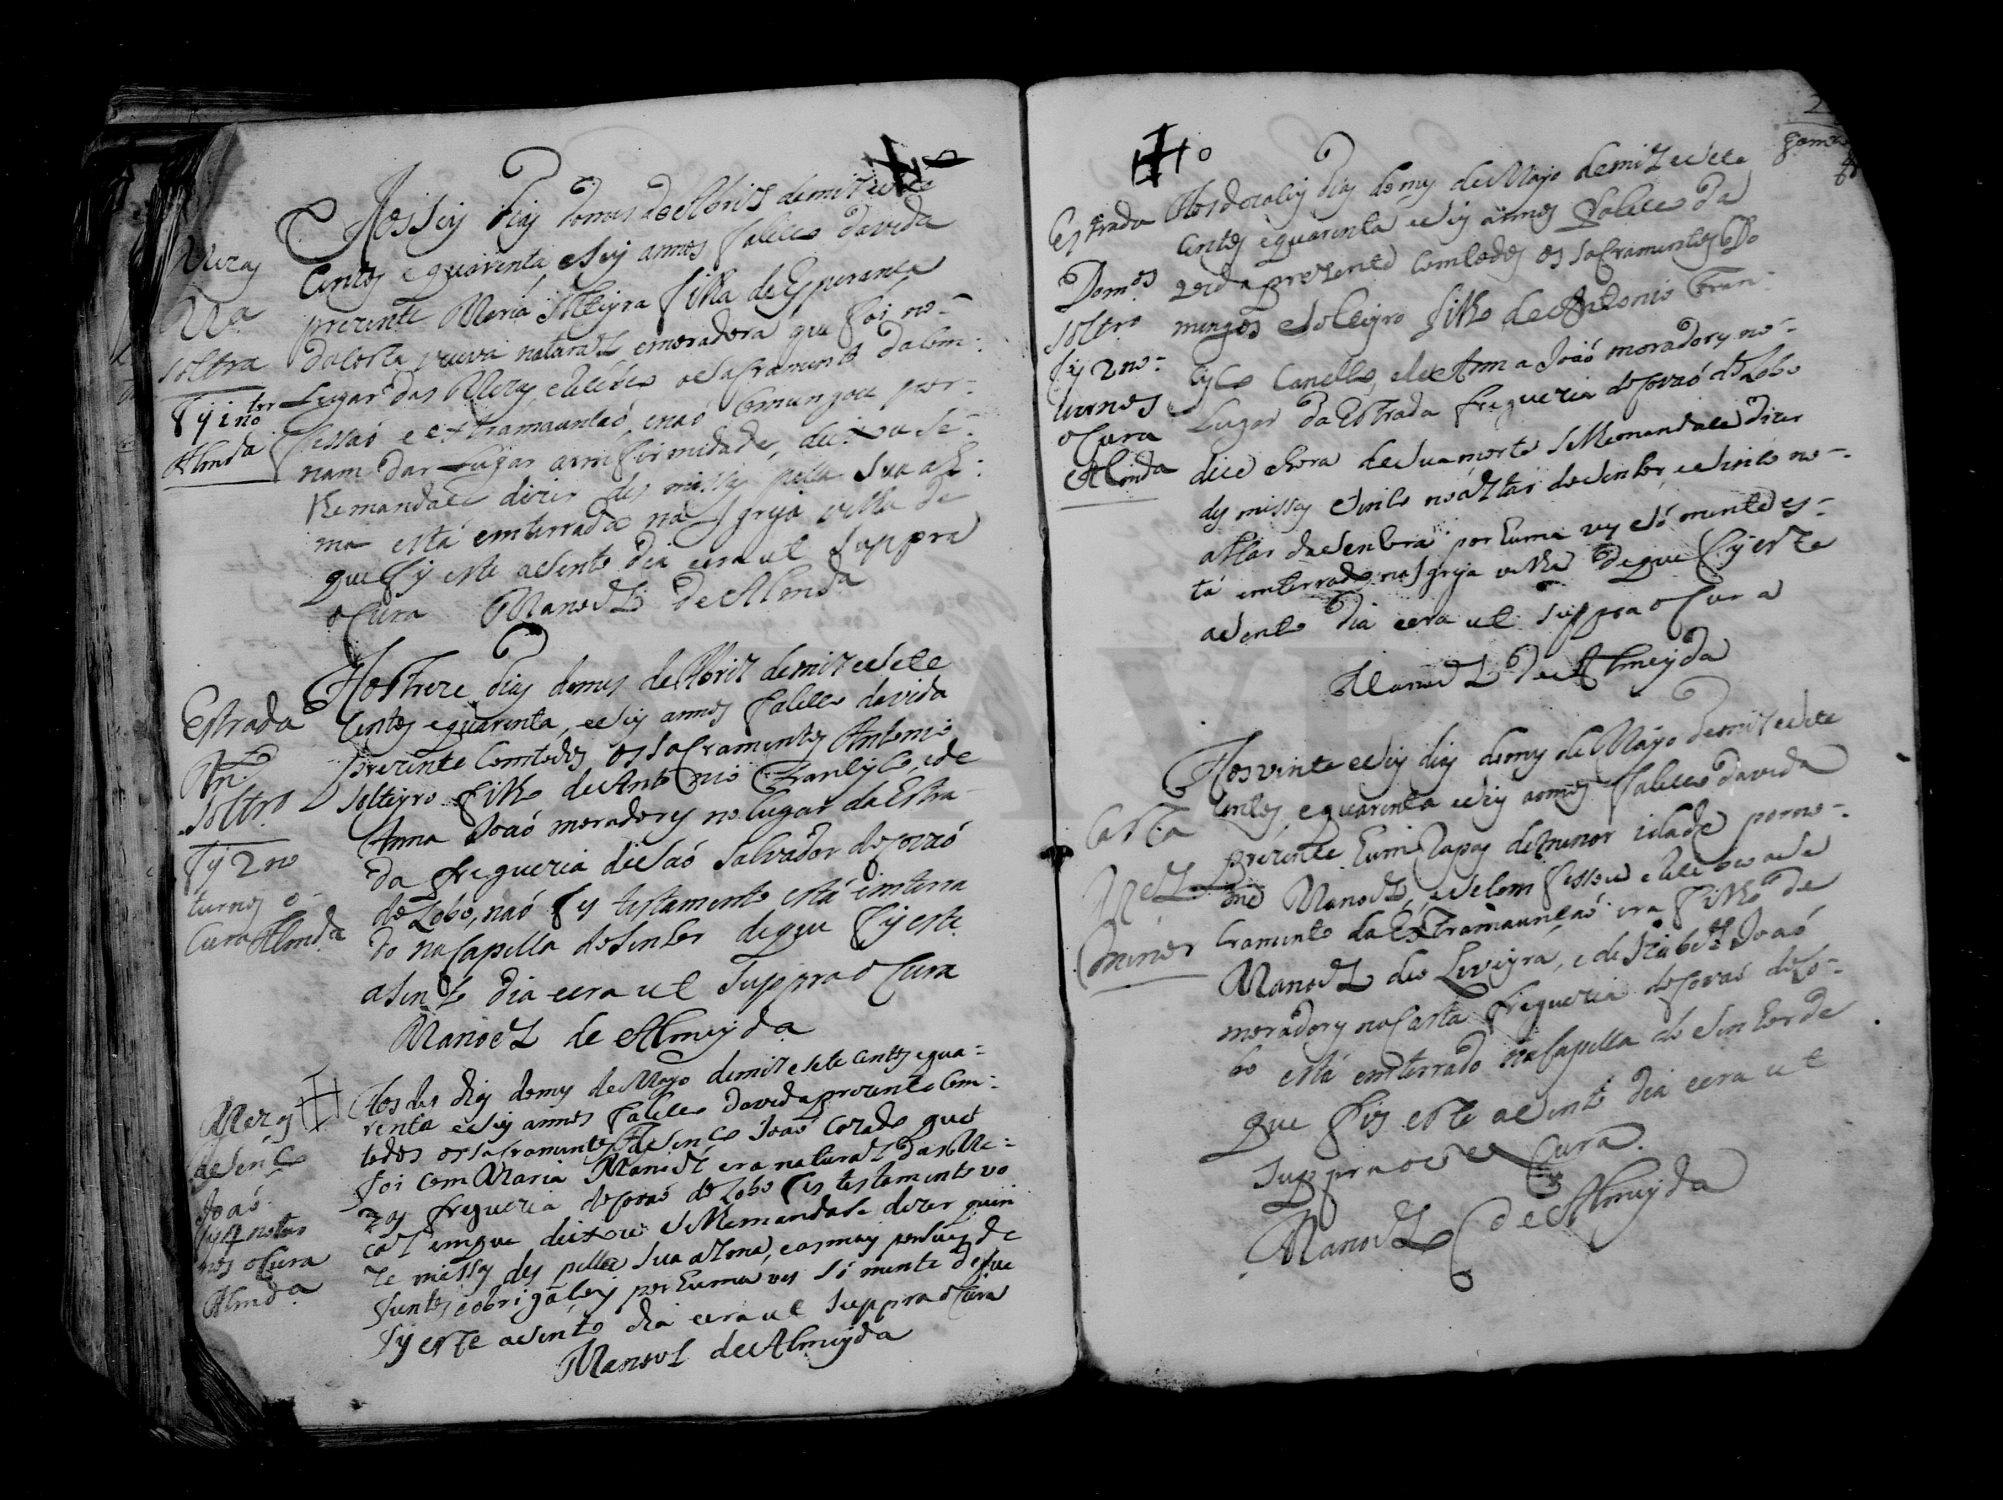 Aos seis dias do mes de Abril de mil e sete
Centos e quarenta, e seis annos faleceo da vida
prezente Maria solteyra filha de Esperança
da Costa veuva natural, e moradora que foi no-
Lugar das Mezas, e receбeo o sacramento da Com:
fissaó e extramaunçaó, e naó Comungou por-
nam dar Lugar a emfirmidade, deixou se-
lhe mandace dizer des missas pella sua al:
ma está emterrada na Igreja velha de
que fis este asento dia e era ut suppra
o Cura Manoel de Almda
Mezas
Ma
soltra
fis 1 no
Almda
Aos treze dias do mes de Abril de mil e sete
Centos e quarenta, e seis annos faleceo da vida
prezente Com todos os sacramentos Antonio
solteyro filho de Antonio Francisco, e de
Anna Joaó moradores no Lugar da Estra-
da freguezia de Saó Salvador do Covaó
do Lobo, naó fes testamento está emterra
do na Capella do Senhor de que fis este
asento dia e era ut suppra o Cura
Manoel de Almeyda
Estrada
Anto
soltro
fis 2 no
turnos o
Cura Almda
Aos des dias do mes de Mayo de mil e sete centos e qua=
renta e seis annos faleceo da vida prezente Com:
todos os sacramentos Asenço Joaó Cazado que
foi com Maria Manoel era natural das Me=
zas freguezia do Covaó do Lobo fes testamento vo
cal em que deixou se lhe mandase dizer quin
ze missas des pella sua alma, e as mais por seus de
funtos e obrigaçois por huma ves só mente de que
fis este asento dia e era ut suppra o Cura
Manoel de Almeyda
Mezas
Asenço
Joaó
fis 4 notur
nos o Cura
Almda
Aos dozaseis dias do mes de Mayo de mil e sete
Centos e quarenta e seis annos faleceo da
vida prezente Com todos os sacramentos Do
mingos solteyro filho de Antonio Fran:
cisco Canello, e de Anna Joaó moradores no-
Lugar da Estrada freguezia do Covaó do Lobo
dice a hora de sua morte se lhe mandace dizer
des missas sinco no altar do Senhor, e sinco no-
altar da Senhora por huma ves só mente es-
tá emterrado na Igreja velha de que fis este
asento dia e era ut suppra o Cura
Manoel de Almeyda
Estrada
Domos
soltro
fis 2 no-
turnos
o Cura
Almda
Aos vinte e seis dias do mes de Mayo de mil e sete
Centos, e quarenta e seis annos faleceo da vida
prezente hum Rapas de menor idade por no-
me Manoel, e se Comfessou e receбeo o sa
cramento da Extramaunçaó era filho de
Manoel de Liveyra, e de Izabel Joaó
moradores na Carta freguezia do Covaó do Lo-
bo está emterrado na Capella do Senhor de
que fis este asento dia e era ut
suppra o Cura
Manoel de Almeyda
Carta
Mel
menor